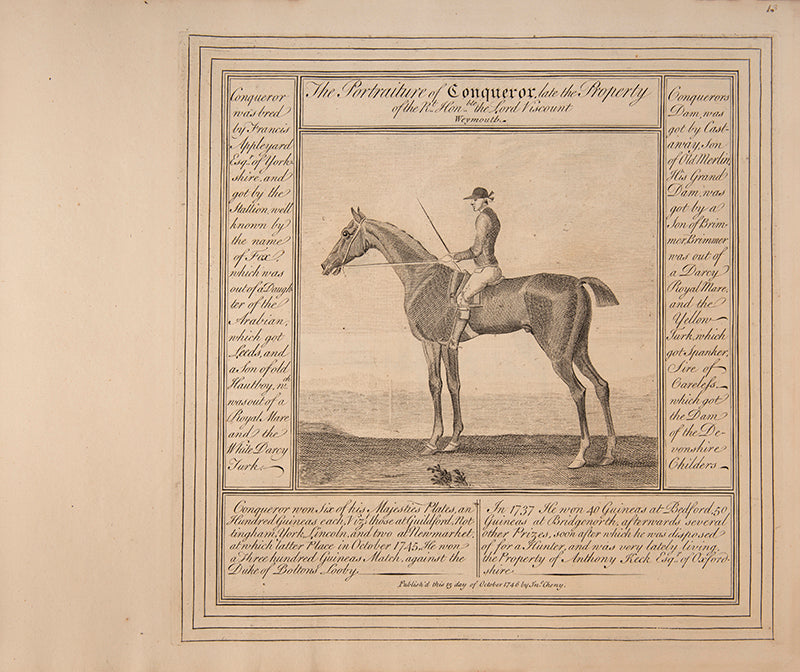 13
The Portraiture of Conqueror, late the Property
of the Rt. Honble. the Lord Viscount
Weymouth.
Conqueror
was bred
by Francis
Appleyard
Esqr. of York-
shire, and
got by the
Stallion, well
known by
the name
of Fox,
which was
out of a Daugh
ter of the
Arabian,
which got
Leeds, and
a Son of old
Hautboy, wch
was out of a
Royal Mare
and the
White Darcy
Turk.
Conquerors
Dam, was
got by Cast-
away, Son
of Old Merlin,
His Grand
Dam, was
got by a
Son of Brim-
mer, Brimmer
was out of
a Darcy
Royal Mare,
and the
Yellow
Turk, which
got Spanker,
Sire of
Careless,
which got
the Dam
of the De-
vonshire
Childers
Conqueror won Six of his Majesties Plates, an
Hundred Guineas each, Vizt. those at Guildford, Not
tingham, York, Lincoln, and two at Newmarket,
at which latter Place in October 1745, He won
a Three hundred Guineas Match, against the
Duke of Boltons Looby.
In 1737 He won 40 Guineas at Bedford, 50
Guineas at Bridgenorth, afterwards several
other Prizes, soon after which he was disposed
of for a Hunter, and was very lately living
the Property of Anthony Keck Esqr. of Oxford-
shire
Publish'd this 15 day of October 1746 by Jno. Cheny.